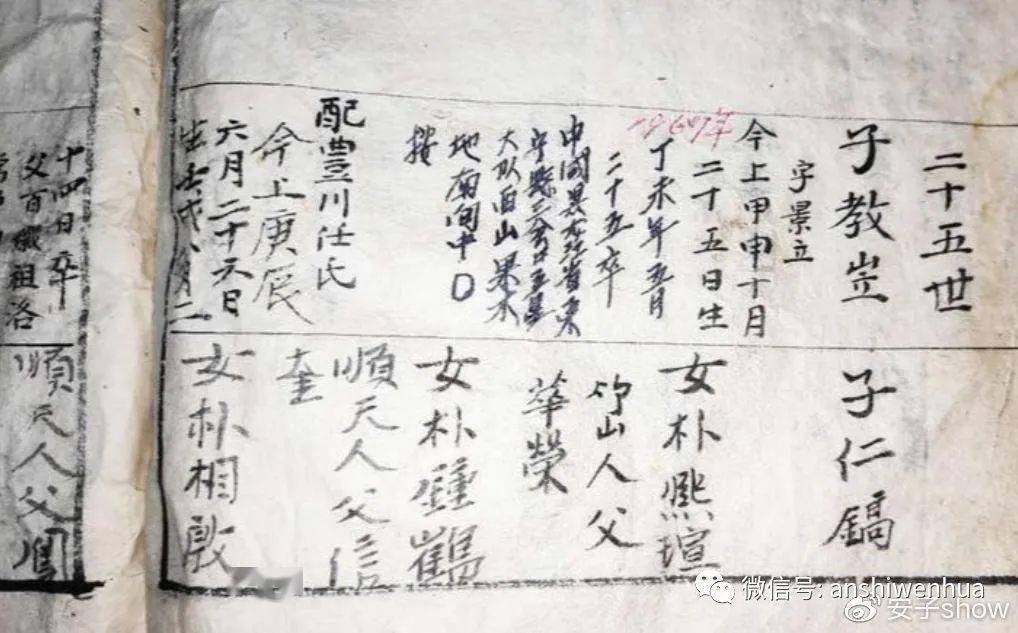 二十五世
子教岦
字景立
今上甲申十月
二十五日生
1967年
丁未年五月
二十五卒
中國黑龙江省東
宁縣三岔口五星
大队西山果木
地南向中口
接
配豊川任氏
今上庚辰
六月二十六日
生壬戌八月二
子仁鎬
女朴熙瑄
竹山人父
華榮
女朴鍾鶴
順天人父信
奎
女朴相殷
十四日卒
父百
祖洛
順天人父鳳
微信号: anshiwenhua
安子show